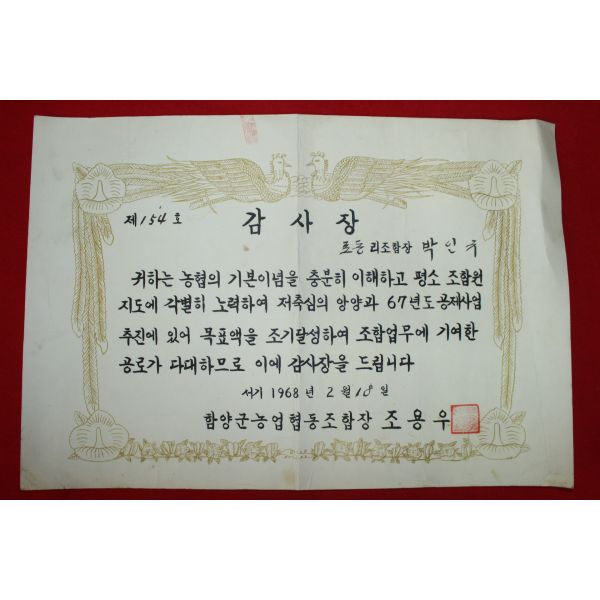 제154호
감사장
리조합장 박인
귀하는 농협의 기본이념을 충분히 이해하고 평소 조합원
지도에 각별히 노력하여 저축심의 앙양과 67년도 공제사업
추진에 있어 목표액을 조기달성하여 조합업무에 기여한
공로가 다대하므로 이에 감사장을 드립니다
서기 1968년 2월 18일
함양군농업협동조합장 조용우